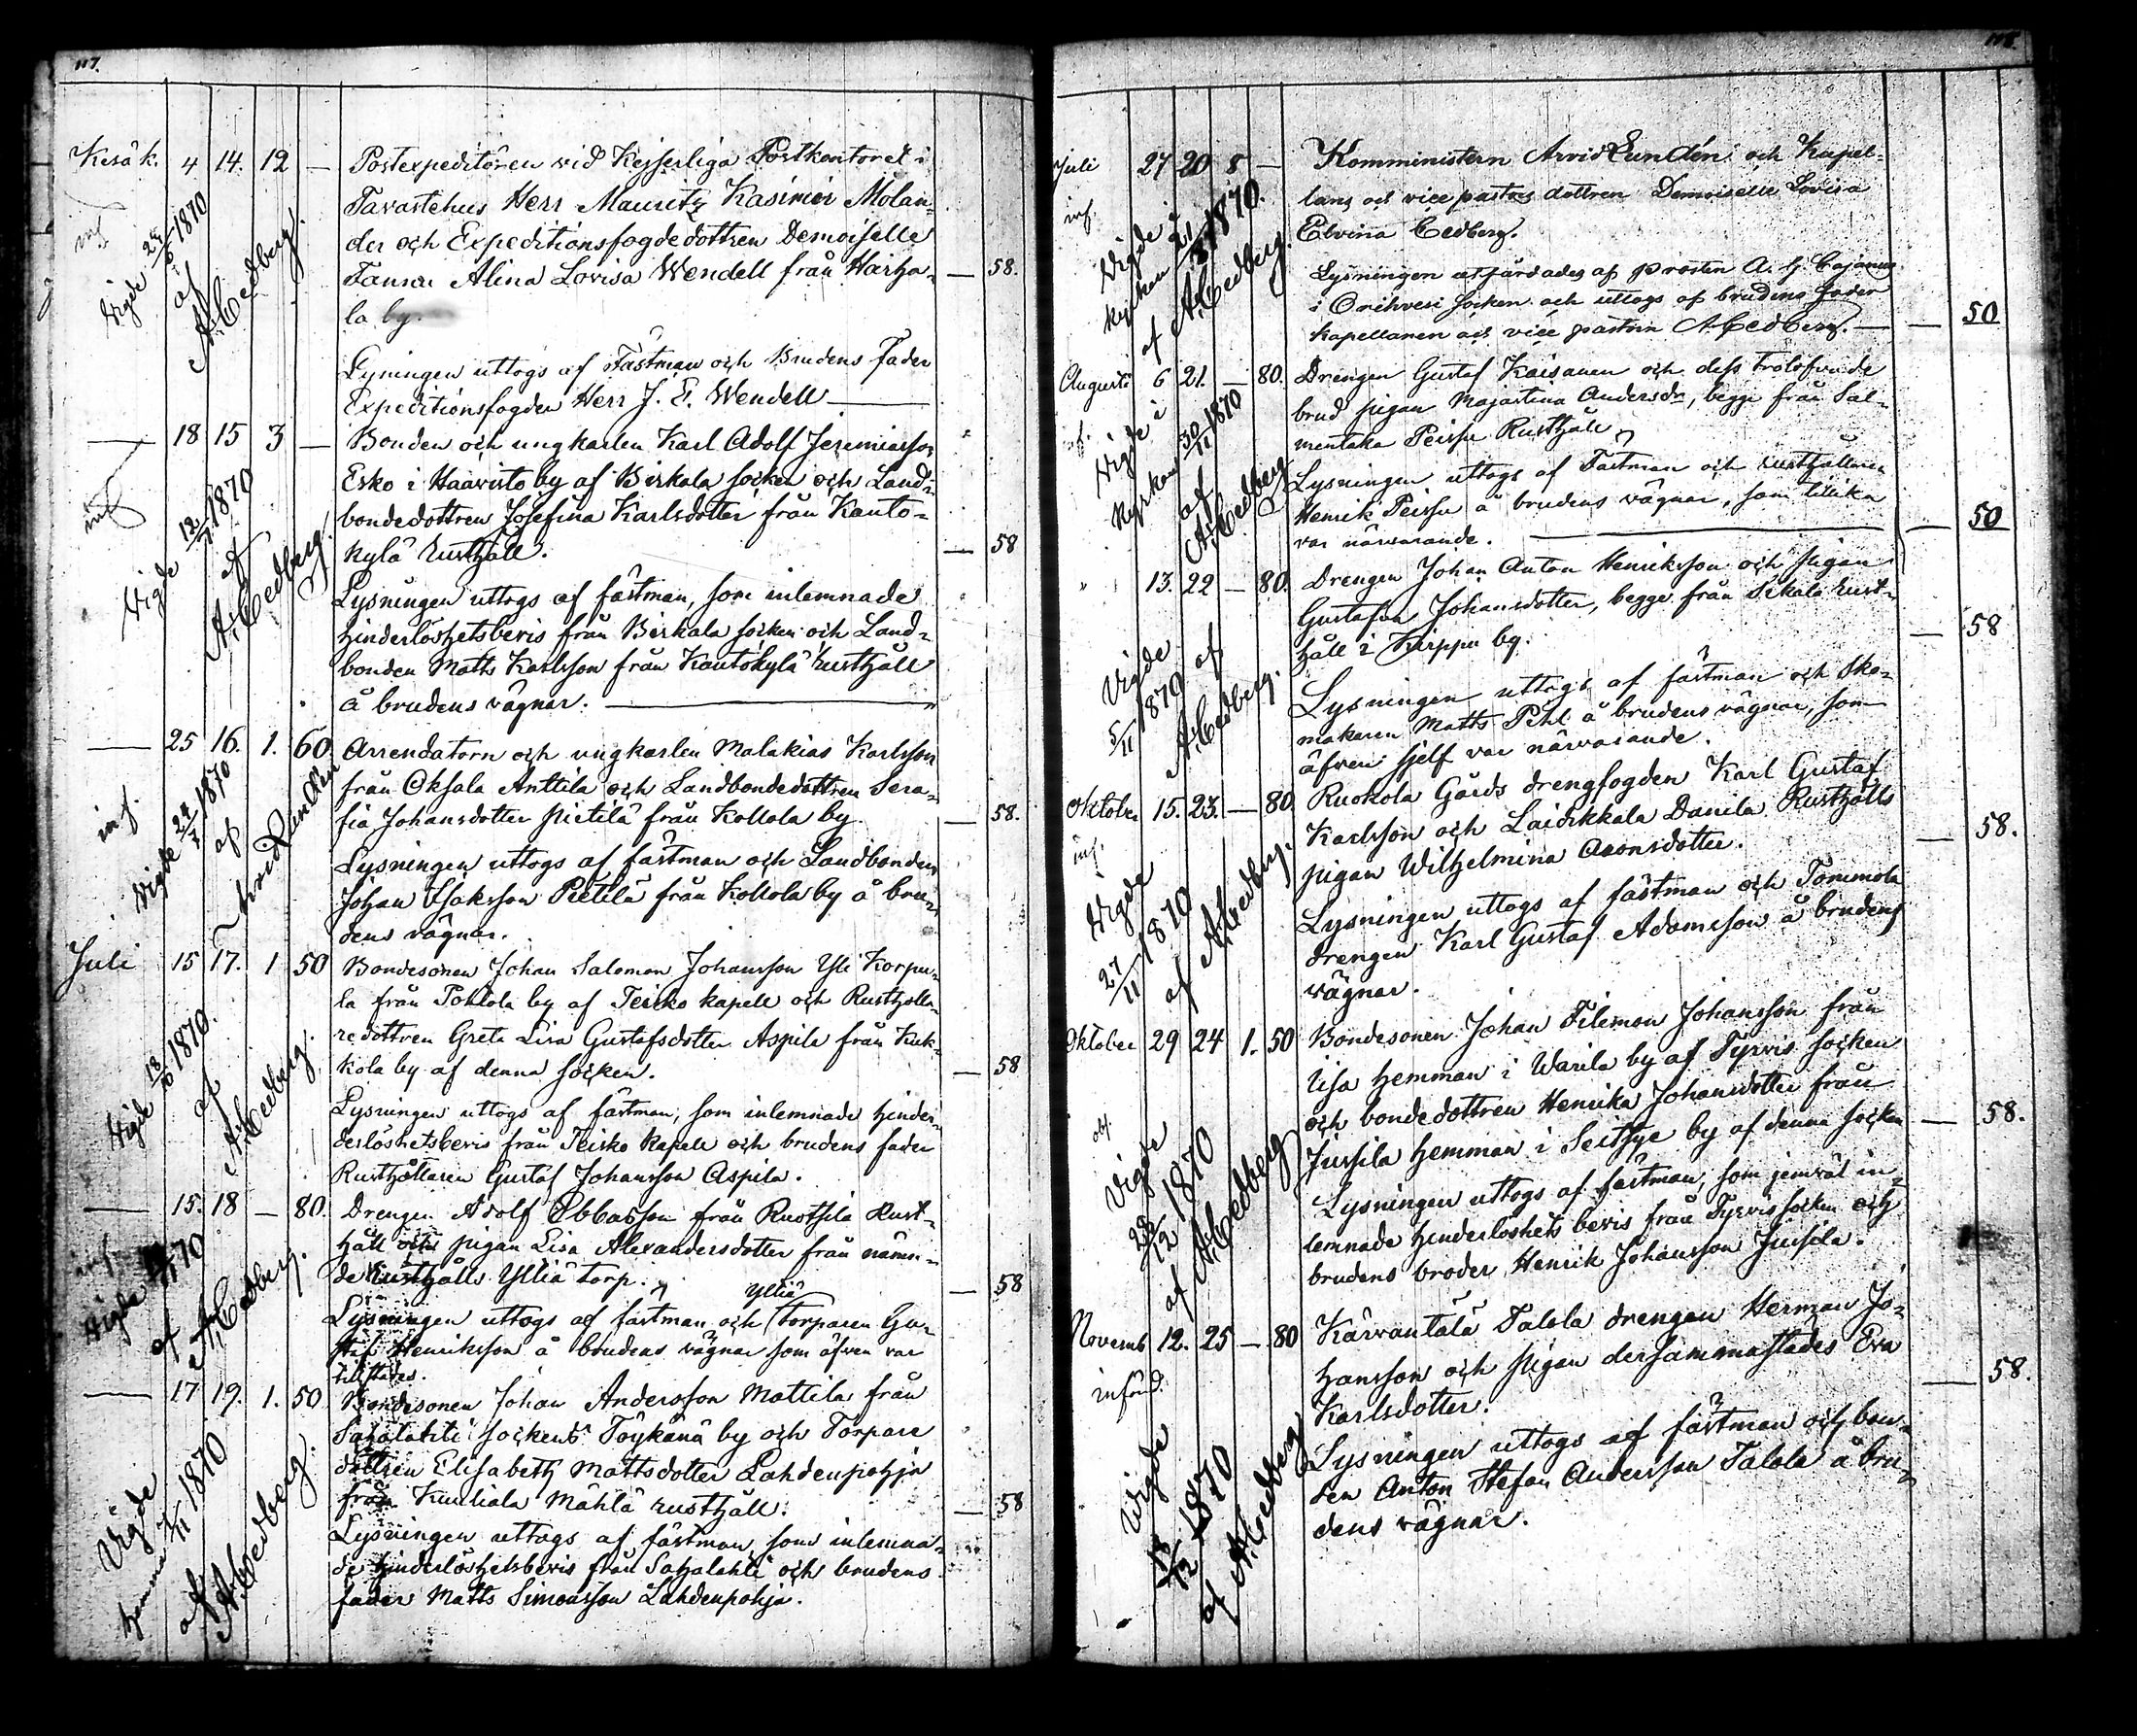 117.
Kesäk. 4 14. 12 — Postexpeditören vid Kejserliga Postkontoret i
Tavastehus Herr Mauritz Kasimir Molan-
der och Expeditionsfogdedottren Demoiselle
Fanni Alina Lovisa Wendell från Harha- — 58.
la by.
inf
Vigde 1870
af
A. Cedberg.
Lysningen uttogs af Fästman och Brudens Fader
Expeditionsfogden Herr J. E. Wendell —
— 18 15 3 — Bonden och ungkarlen Karl Adolf Jeremiasson
Esko i Haavisto by af Birkala socken och Land-
bondedottren Josefina Karlsdotter från Kanto-
kylä Rusthåll. — 58
inf
Vigde 12/7 1870
af
A. Cedberg.
Lysningen uttogs af fästman, som inlemnade
hinderlöshetsbevis från Birkala socken och Land-
bonden Matts Karlsson från Kantokylä rusthåll
å brudens vägnar. —
— 25 16. 1. 60 Arrendatorn och ungkarlen Malakias Karlsson
från Oksala Anttila och Landbondedottren Sera-
fia Johansdotter Pietilä från Kollola by. — 58.
inf.
Vigde 24/7 1870
af
Arvid Lundén
Lysningen uttogs af fästman och Landbonden
Johan Isaksson Pietilä från Kollola by å bru-
dens vägnar.
Juli 15 17. 1 50 Bondesonen Johan Salomon Johansson Yli Korpu-
la från Pohtola by af Teisko kapell och Rusthålla-
redottren Greta Lisa Gustafsdotter Aspila från Kuk-
kola by af denna socken. — 58
Vigde 18/10 1870.
af
A. Cedberg.
Lysningen uttogs af fästman, som inlemnade hinder-
derlöshetsbevis från Teisko kapell och brudens fader
Rusthållaren Gustaf Johansson Aspila.
— 15. 18 — 80. Drengen Adolf Ebbasson från Ruotsila Rust-
håll och pigan Lisa Alexandersdotter från nämn-
de Rusthålls Ylliä torp. — 58
inf.
Vigde 70
af A. Cedberg.
Ylliä
Lysningen uttogs af fästman och Torparen Gu-
staf Henriksson å brudens vägnar som äfven var
tillstädes.
— 17 19. 1. 50 Bondesonen Johan Andersson Mattila från
Sahalahti sockens Töykänä by och Torpare
dottren Elisabeth Mattsdotter Lahdenpohja
från Kuuliala Mählä rusthåll. — 58
Vigde
hemma 1870
af
A. Cedberg.
Lysningen uttogs af fästman, som inlemna-
de hinderlöshetsbevis från Sahalahti och brudens
fader Matts Simonsson Lahdenpohja.
118.
Juli 27 20 8 — Komministern Arvid Lundén och Kapel-
lans och vice pastors dottren Demoiselle Lovisa
Elvira Cedberg.
inf.
Vigde i
kyrkan 1870.
af A. Cedberg.
Lysningen utfärdades af prosten A. G. Cajanus
i Orihvesi socken och uttogs af brudens fader
kapellanen och vice pastorn A. Cedberg. — — 50
Augusti 6 21. — 80. Drengen Gustaf Kaisanen och dess trolofvade
brud pigan Majastina Andersdr, begge från Sal-
mentaka Peissu Rusthåll
Vigde i
Kyrkan 30/11 1870
af
A. Cedberg
Lysningen uttogs af Fästman och rusthållaren
Henrik Peissu å brudens vägnar, som tillika
var närvarande. — — 50
" 13. 22 — 80. Drengen Johan Anton Henriksson och pigan
Gustafva Johansdotter, begge från Sikala rust-
håll i Kirppu by. — 58
Vigde
5/11 1870 af
A. Cedberg.
Lysningen uttogs af fästman och Sko-
makaren Matts Pihl å brudens vägnar, som
äfven sjelf var närvarande.
Oktober 15. 23. — 80. Ruokola Gårds drengfogden Karl Gustaf
Karlsson och Laidikkala Danila Rusthålls
pigan Wilhelmina Aronsdotter. — 58.
inf.
Vigde
27/11 1870
af A. Cedberg.
Lysningen uttogs af fästman och Tommola
drengen Karl Gustaf Adamsson å brudens
vägnar.
Oktober 29 24 1. 50 Bondesonen Johan Filemon Johansson från
Uisa hemman i Warila by af Tyrvis socken
och bondedottren Henrika Johansdotter från
Jussila hemman i Seitsye by af denna socken — 58.
Vigde
28/12 1870
af A. Cedberg
Lysningen uttogs af fästman, som jemväl in-
lemnade hinderlöshets bevis från Tyrvis socken och
brudens broder Henrik Johansson Jussila.
Novemb 12. 25 — 80 Kärvantälä Talola drengen Herman Jo-
hansson och pigan dersammastädes Eva
Karlsdotter. — 58.
införd.
Vigde
1870
af A. Cedberg
Lysningen uttogs af fästman och bon-
den Anton Stefan Andersson Talola å bru-
dens vägnar.